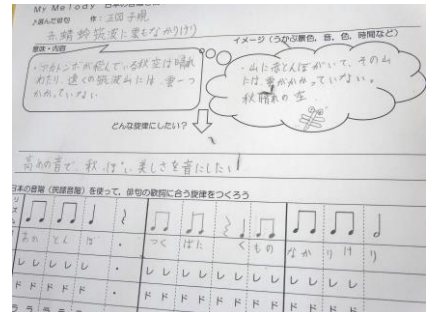 My Melody 日本の音階
♪選んだ俳句 作：正岡子規
赤蜻蛉筑波に雲もなかりけり
意味・内容
イメージ（うかぶ景色、音、色、時間など）
・アカトンボが飛んでいる秋空は晴れ
わたり、遠くの筑波山には、雲一つ
かかっていない。
・山に赤とんぼがいて、その山
には、雲がかかっていない。
秋晴れの空
どんな旋律にしたい？
高めの音で、秋っぽい美しさを音にしたい
日本の音階（民謡音階）を使って、俳句の歌詞に合う旋律をつくろう
リズム
あか とん ぼ ・ つく ばに くもの なか り け り
レ レ レ レ レ ・ レ レ レ レ レ レ レ レ レ レ レ
ド ド ド ド ド ・ ド ド ド ド ド ド ド ド ド ド ド
ラ ラ ラ ラ